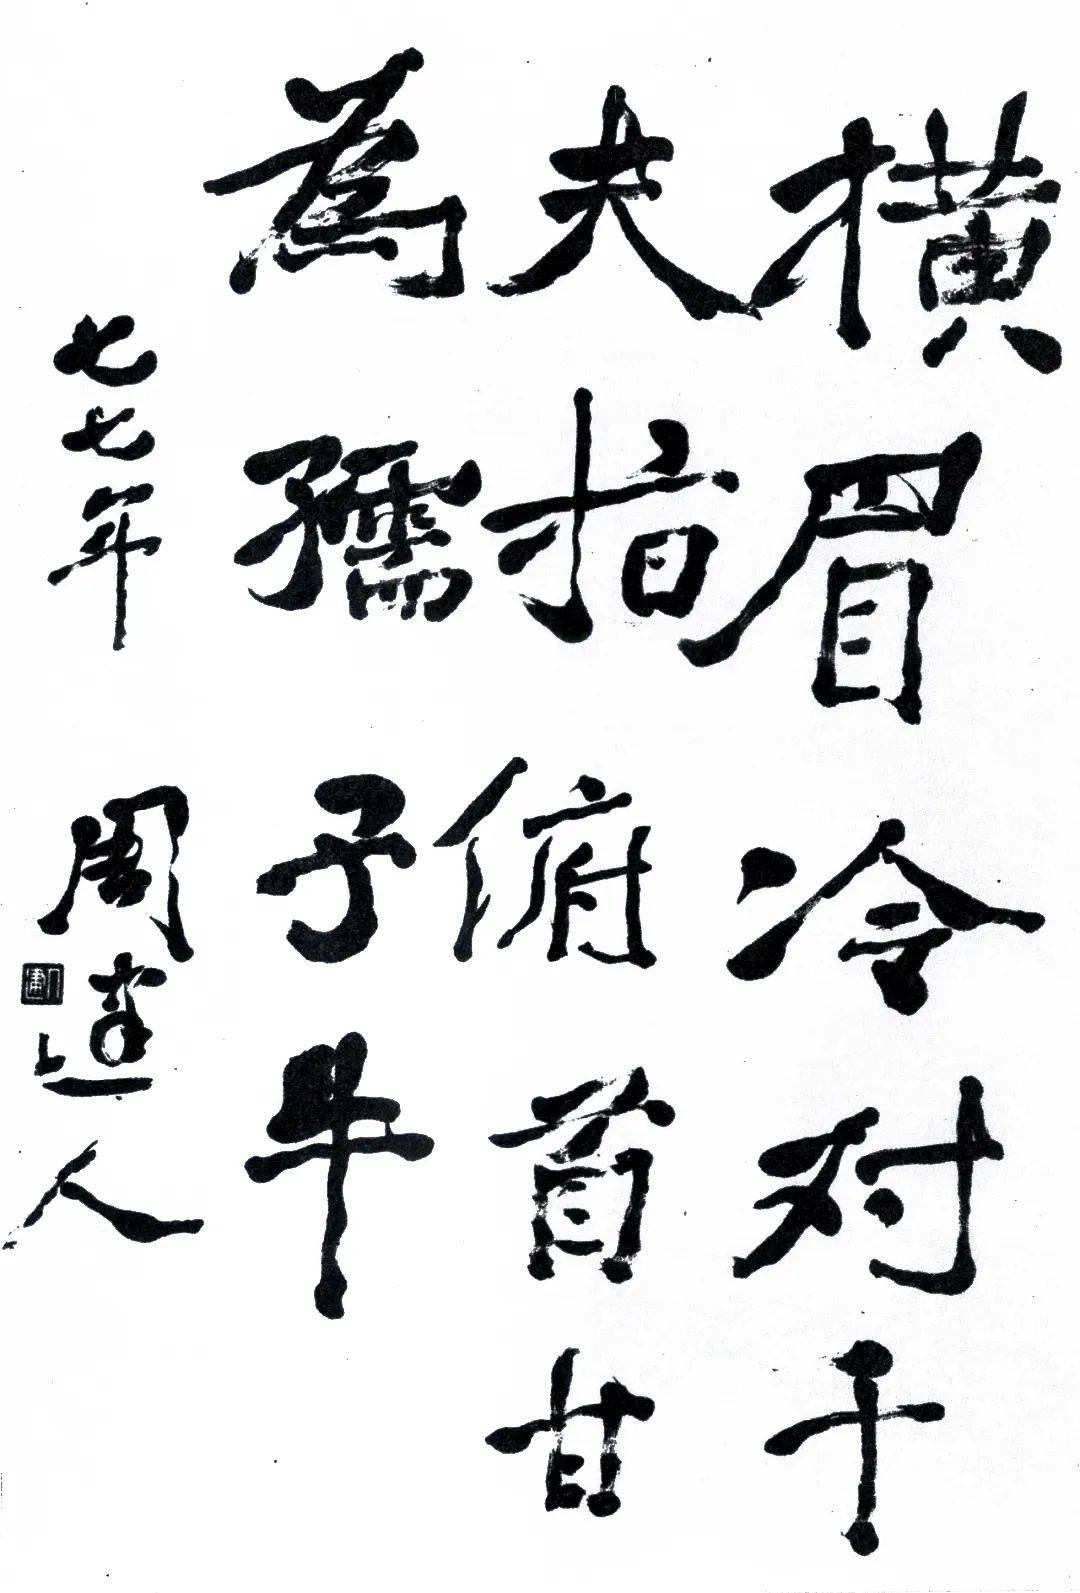 横眉冷对千
夫指俯首甘
為孺子牛
七七年 周建人